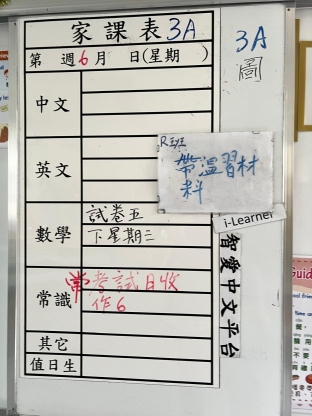 家課表 3A
第 週 6月 日(星期 )
中文
英文
數學
試卷五
下星期三
常識
常考試日收
作6
其它
值日生
3A
圖
R班
帶溫習材
料
i-Learner
智愛中文平台
Guid